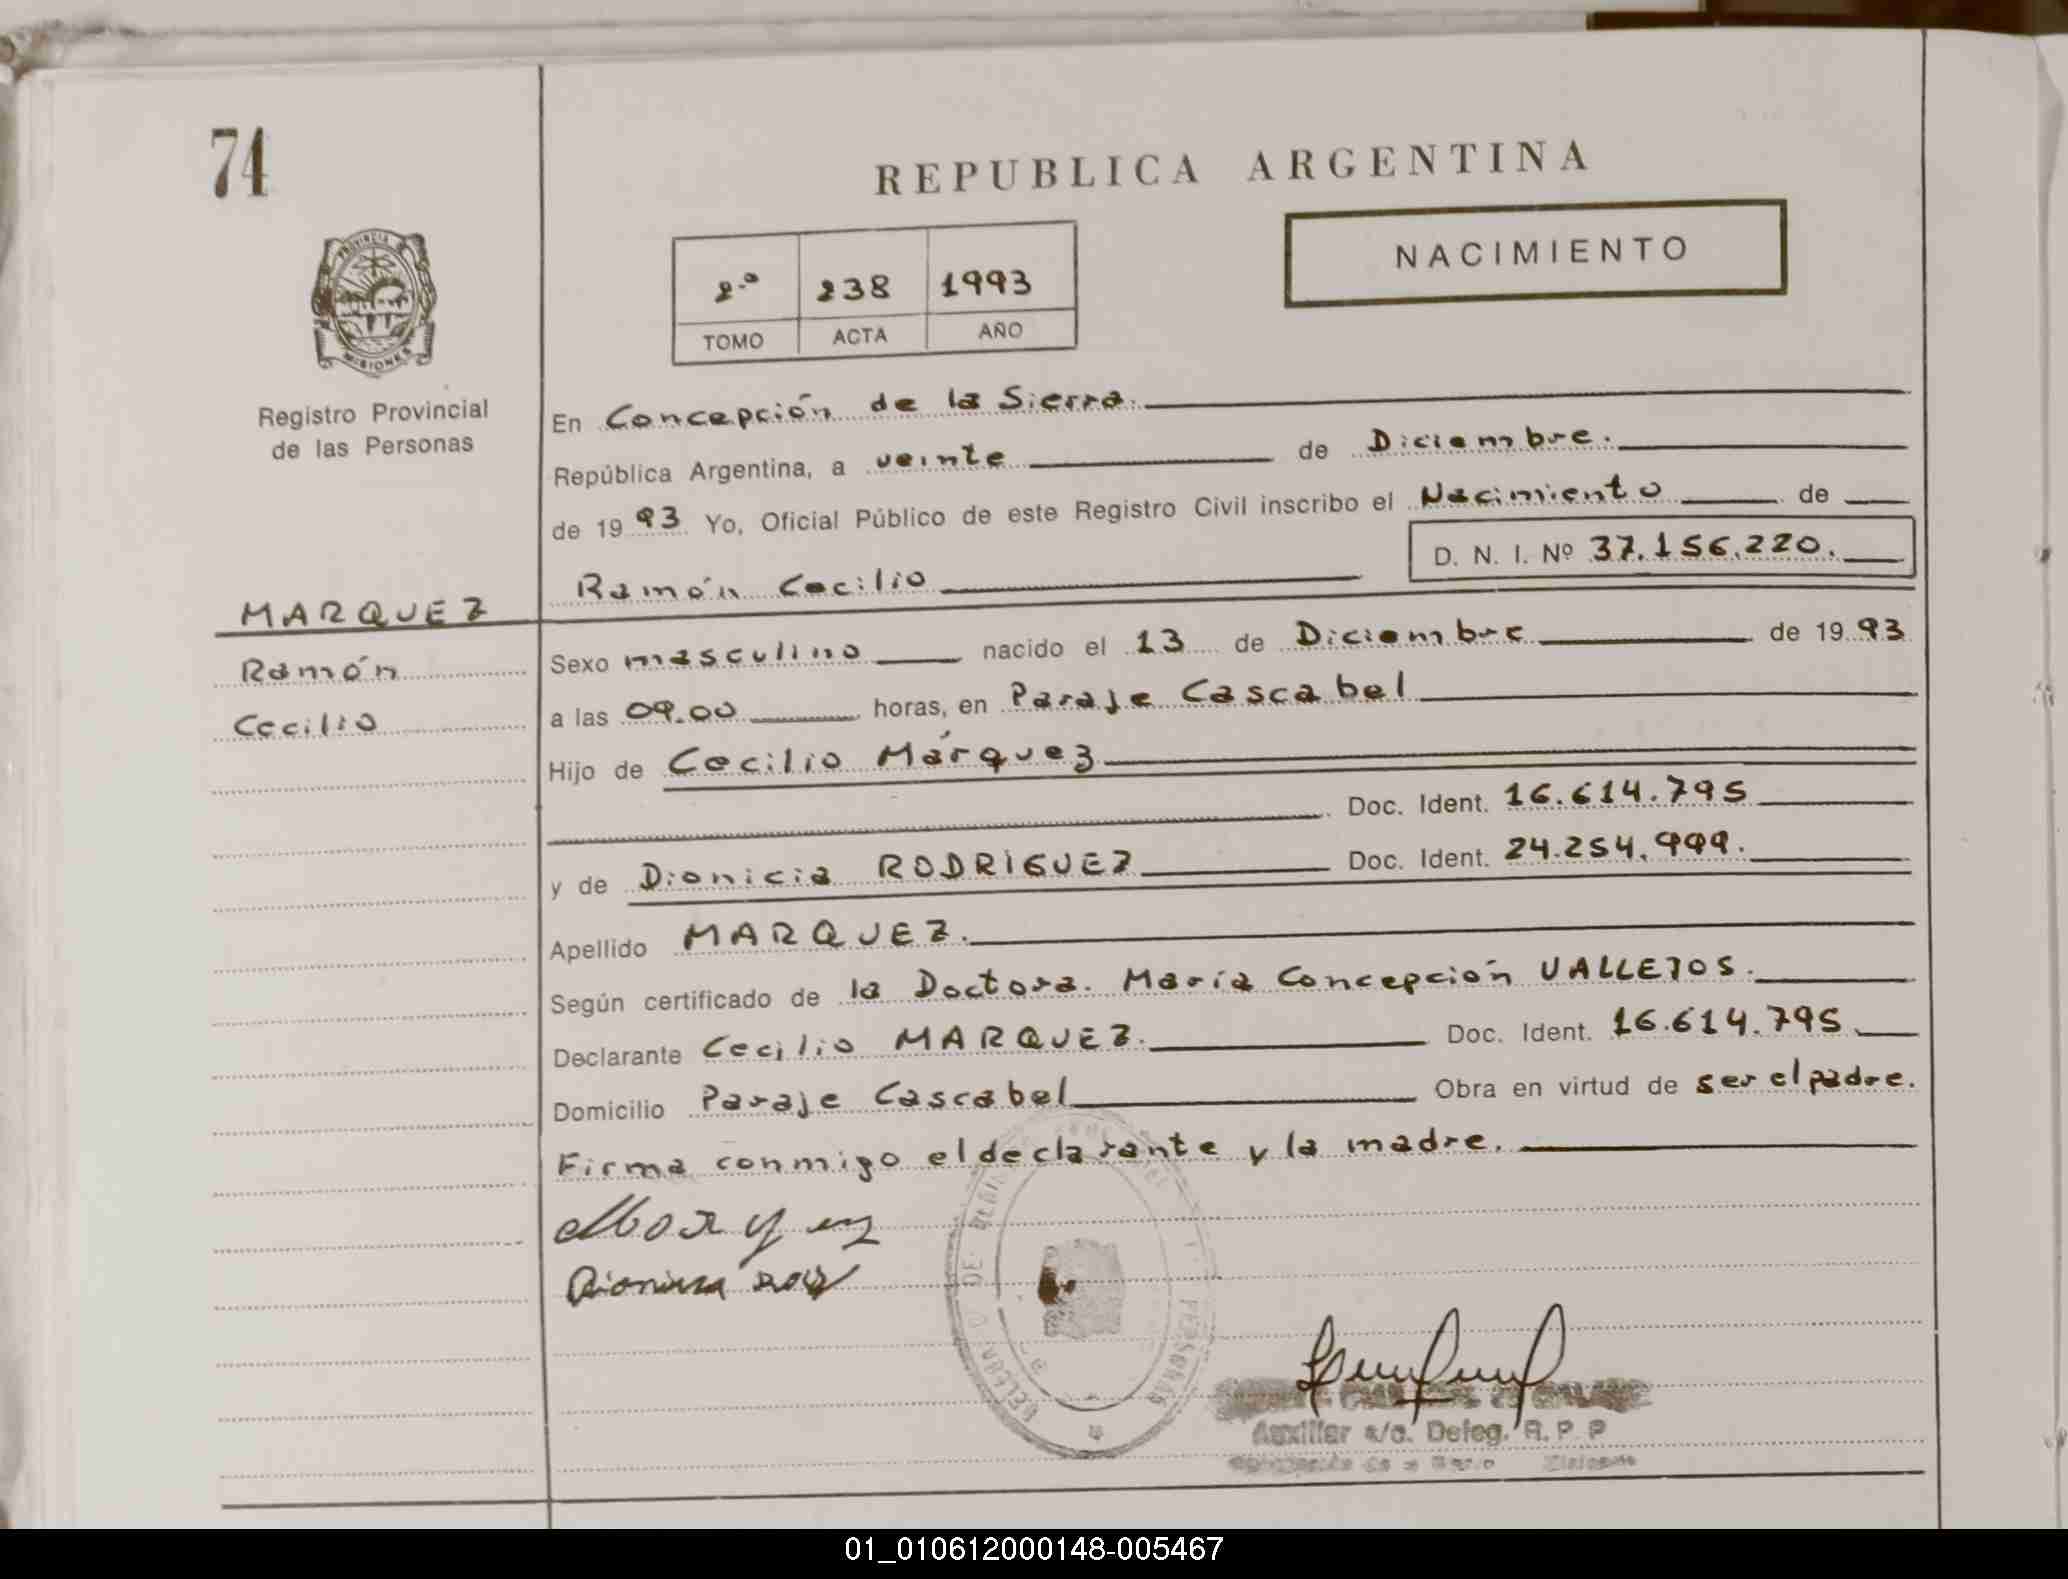 74
REPUBLICA ARGENTINA
NACIMIENTO
2.º 238 1993
TOMO ACTA AÑO
PROVINCIA DE
MISIONES
Registro Provincial
de las Personas
En Concepción de la Sierra.
República Argentina, a veinte de Diciembre.
de 1993 Yo, Oficial Público de este Registro Civil inscribo el Nacimiento de
D. N. I. Nº 37.156.220.
Ramón Cecilio
MARQUEZ
Ramón
Cecilio
Sexo masculino nacido el 13 de Diciembre de 1993
a las 09.00 horas, en Paraje Cascabel
Hijo de Cecilio Márquez
Doc. Ident. 16.614.795
y de Dionicia RODRÍGUEZ Doc. Ident. 24.254.999.
Apellido MARQUEZ.
Según certificado de la Doctora. María Concepción VALLEJOS.
Declarante Cecilio MARQUEZ. Doc. Ident. 16.614.795.
Domicilio Paraje Cascabel Obra en virtud de ser el padre.
Firma conmigo el declarante y la madre.
PERSONAS
Auxiliar a/c. Deleg. R. P. P
01_010612000148-005467